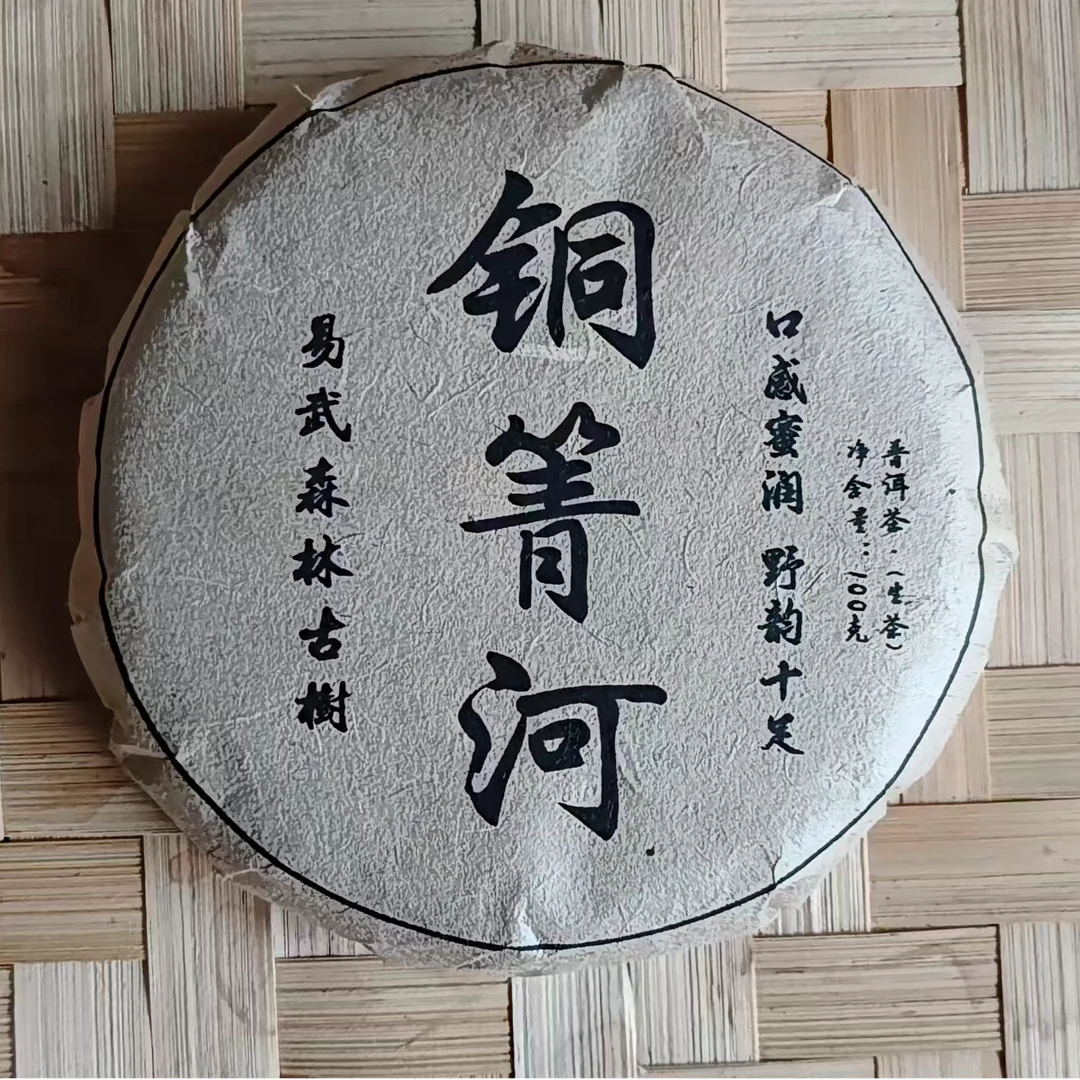 普洱茶·(生茶)
净含量：100克
口感蜜润 野韵十足
铜箐河
易武森林古樹